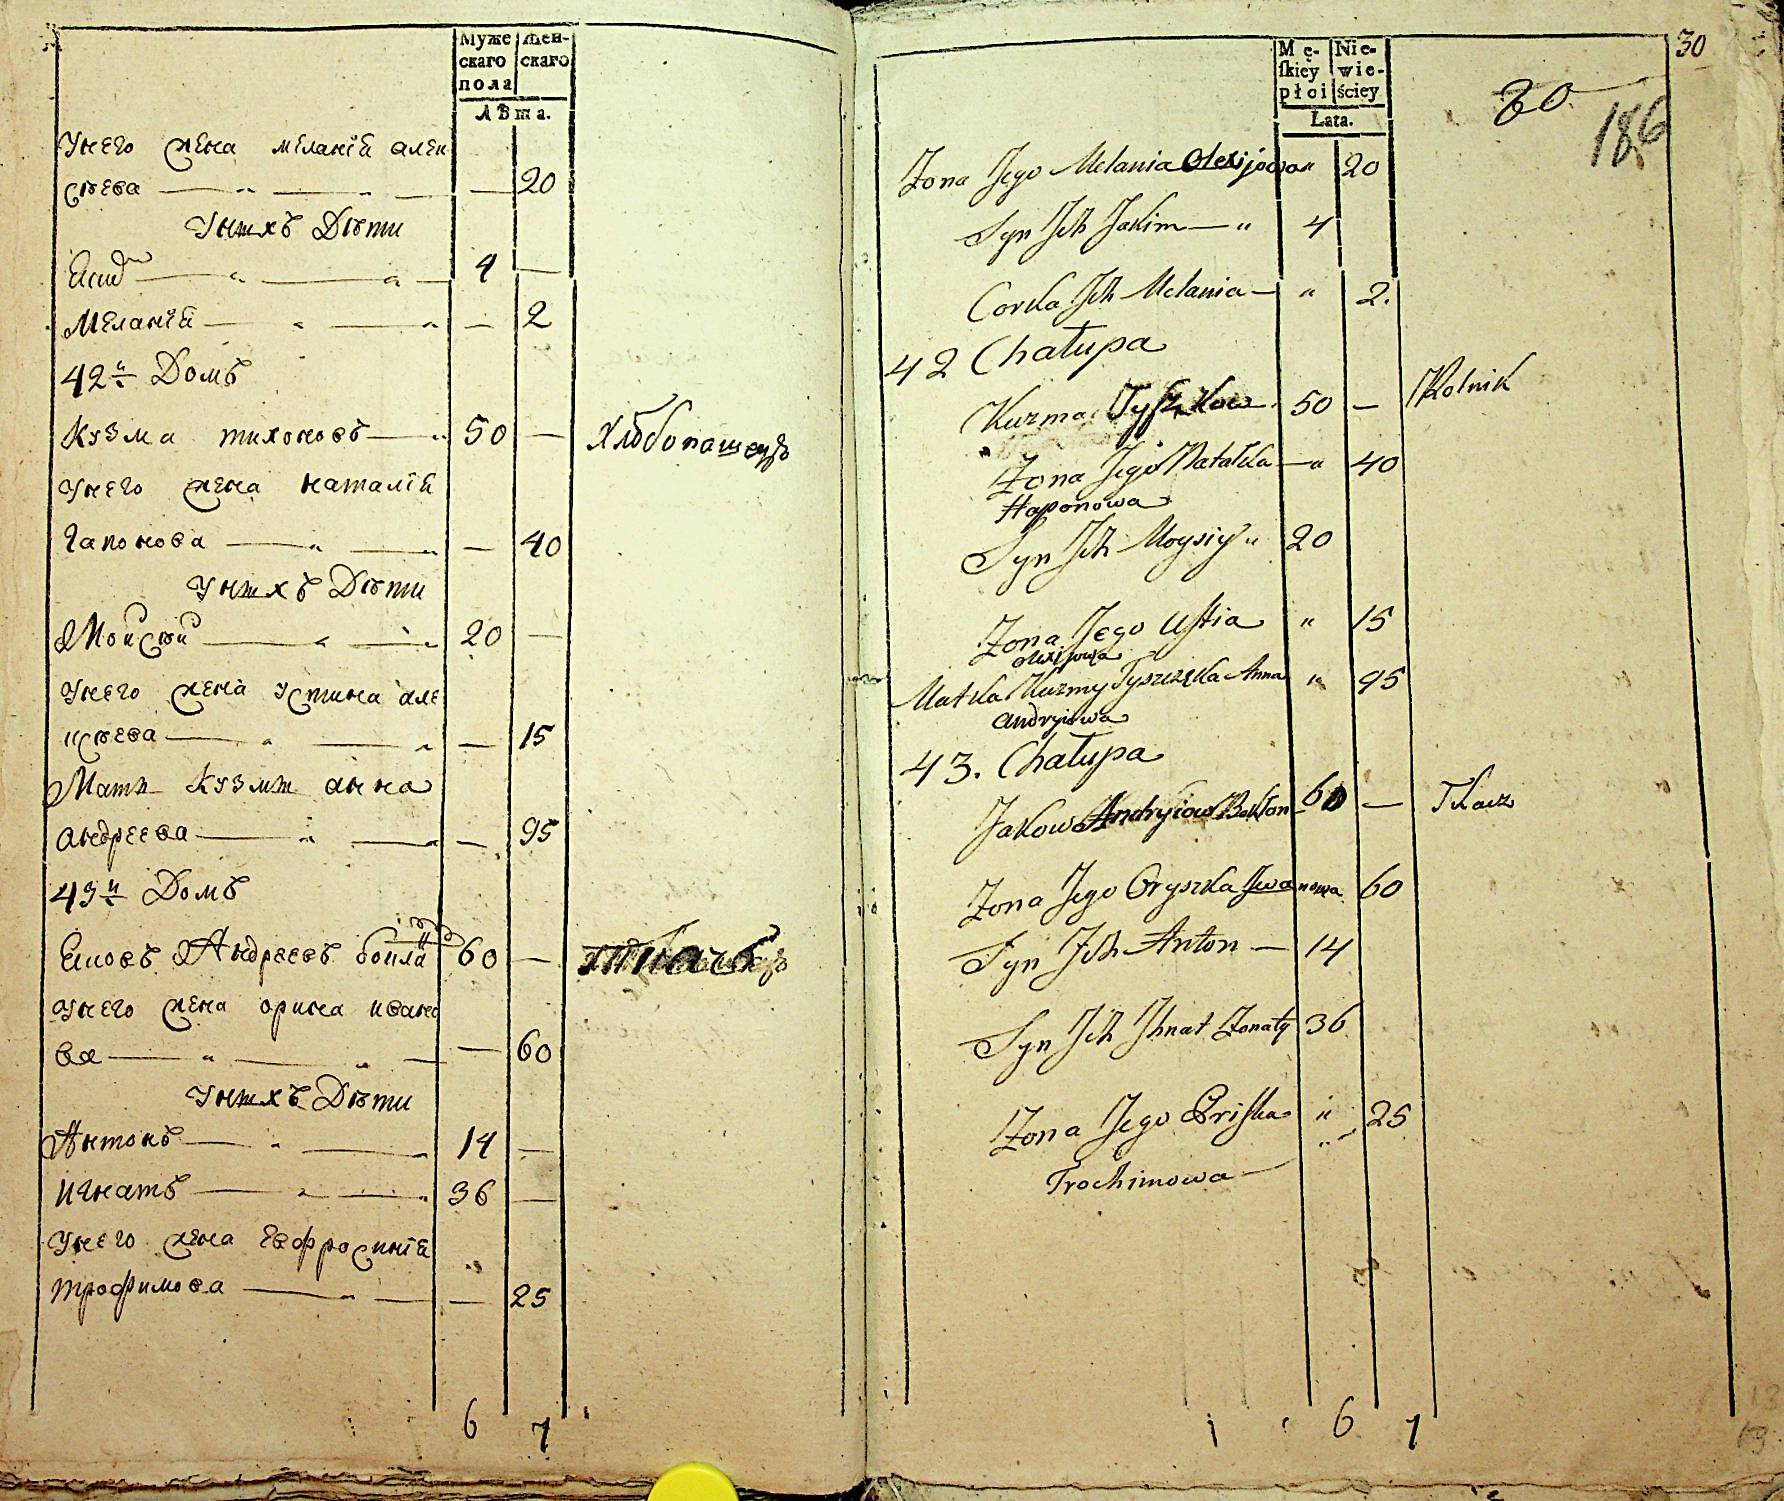 Муже скаго пола
Жен- скаго
Лѣта.
Унего жена меланїй алек
сѣева — „ — „ — — 20
Унихъ Дѣти
Еким — „ — „ — 4 —
Меланїй — „ — „ — 2
42й Домъ
Кузма тихоновъ — „ 50 — Хлѣбопашецъ
Унего жена наталїй
гапонова — „ — „ — 40
Унихъ Дѣти
Мойсѣй — „ — „ 20 —
Унего жена Устина але
ксѣева — „ — „ — 15
Мать Кузмы анна
андреева — „ — „ — 95
43й Домъ
Ековъ Андреевъ 60 — Ткачъ
Унего жена орина ивано
ва — „ — „ — — 60
Унихъ Дѣти
Антонъ — „ — „ 14 —
Игнатъ — „ — „ 36 —
Унего жена Евфросинїй
трофимова — „ — — 25
6 7
30
Mę- skiey płci
Nie- wie- ściey
Lata.
80
186
Zona Jego Melania Olexijowa „ 20
Syn Jch Jakim — „ 4
Corka Jch Melania — „ 2.
42 Chałupa
Kuzma Tyszkow 50 — Rolnik
Zona Jego Natałka — „ 40
Haponowa
Syn Jch Moysiy „ 20
Zona Jego Ustia „ 15
olexijowa
Matka Kuzmy Tyszczka Anna „ 95
Andryiowa
43. Chałupa
Jakow Andryiow 60 — Tkacz
Zona Jego Oryszka Jwanowa 60
Syn Jch Anton — 14
Syn Jch Jhnat Zonaty 36
Zona Jego Priska „ 25
Trochimowa —
6 7